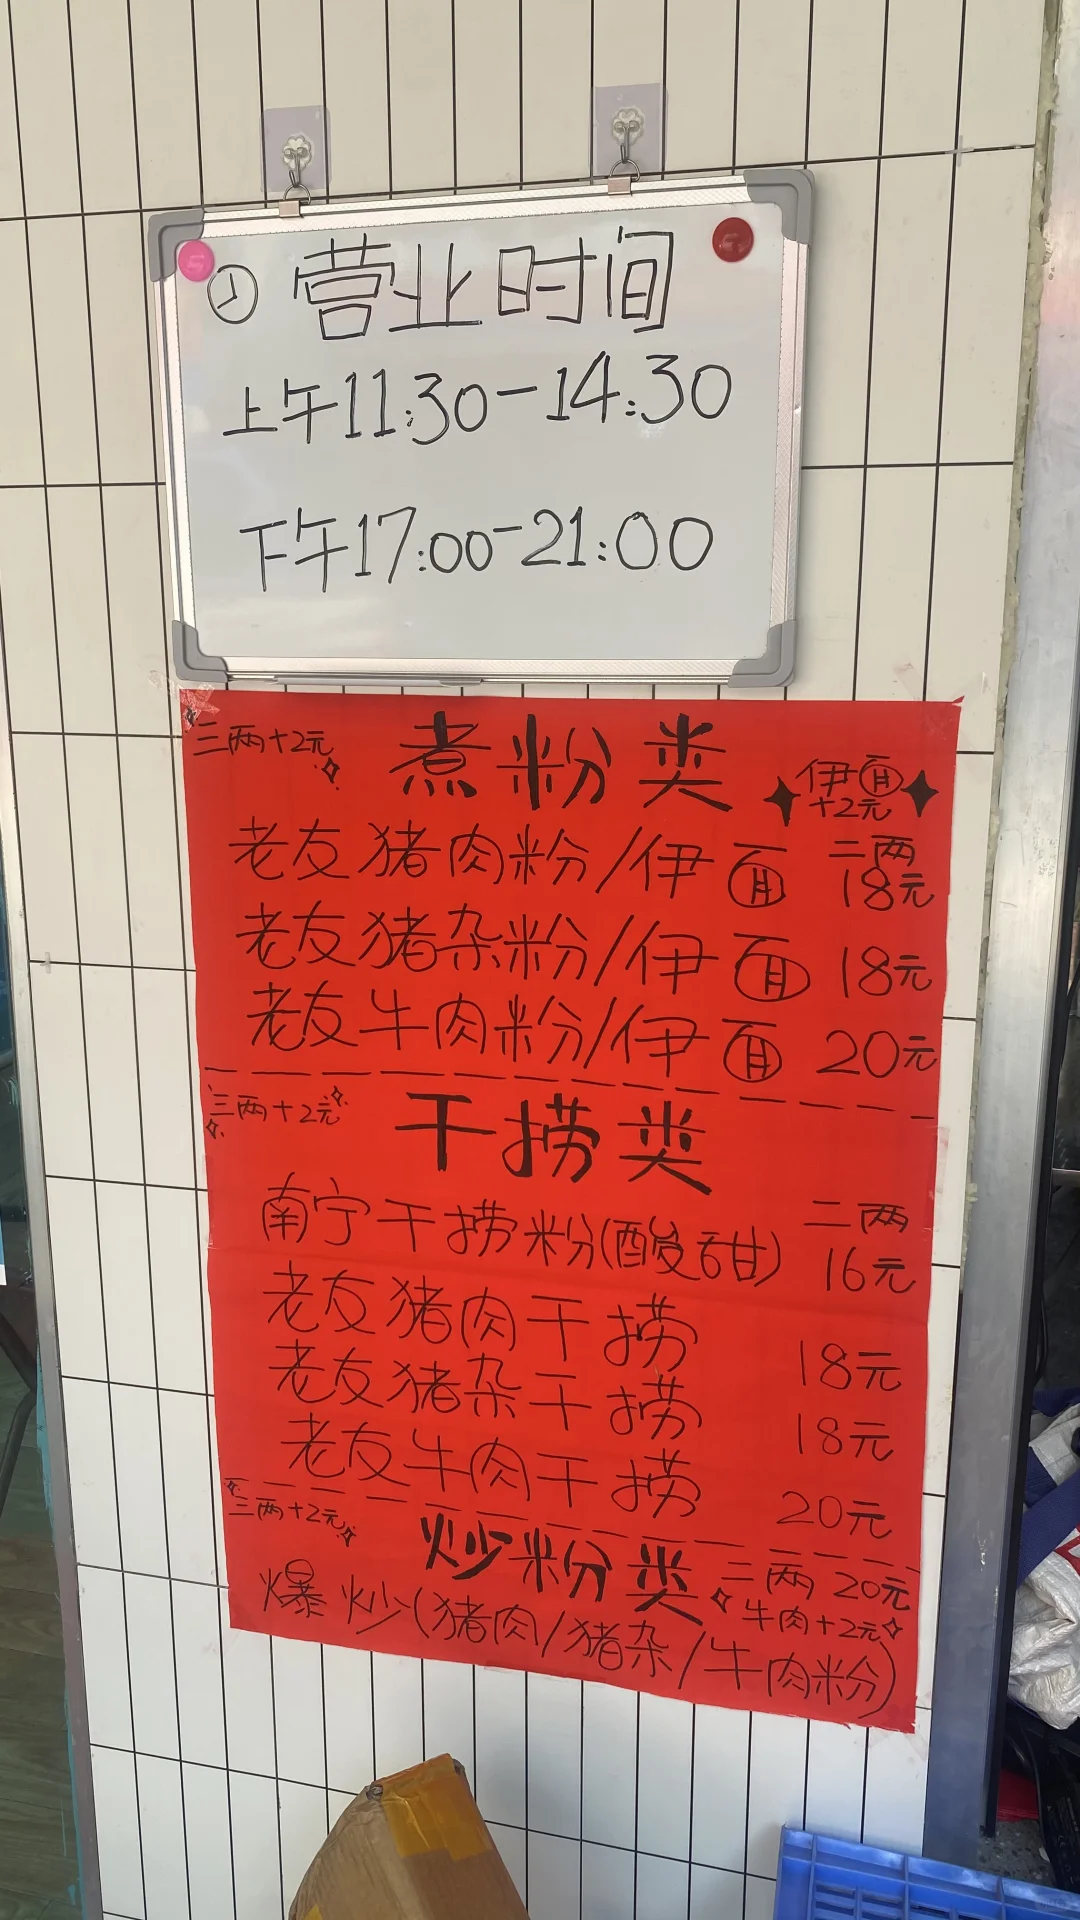 营业时间
上午11:30-14:30
下午17:00-21:00
三两+2元
煮粉类
伊面
+2元
老友猪肉粉/伊面 二两
18元
老友猪杂粉/伊面 18元
老友牛肉粉/伊面 20元
三两+2元
干捞类
南宁干捞粉(酸甜) 二两
16元
老友猪肉干捞 18元
老友猪杂干捞 18元
老友牛肉干捞 20元
三两+2元
炒粉类 二两 20元
牛肉+2元
爆炒(猪肉/猪杂/牛肉粉)